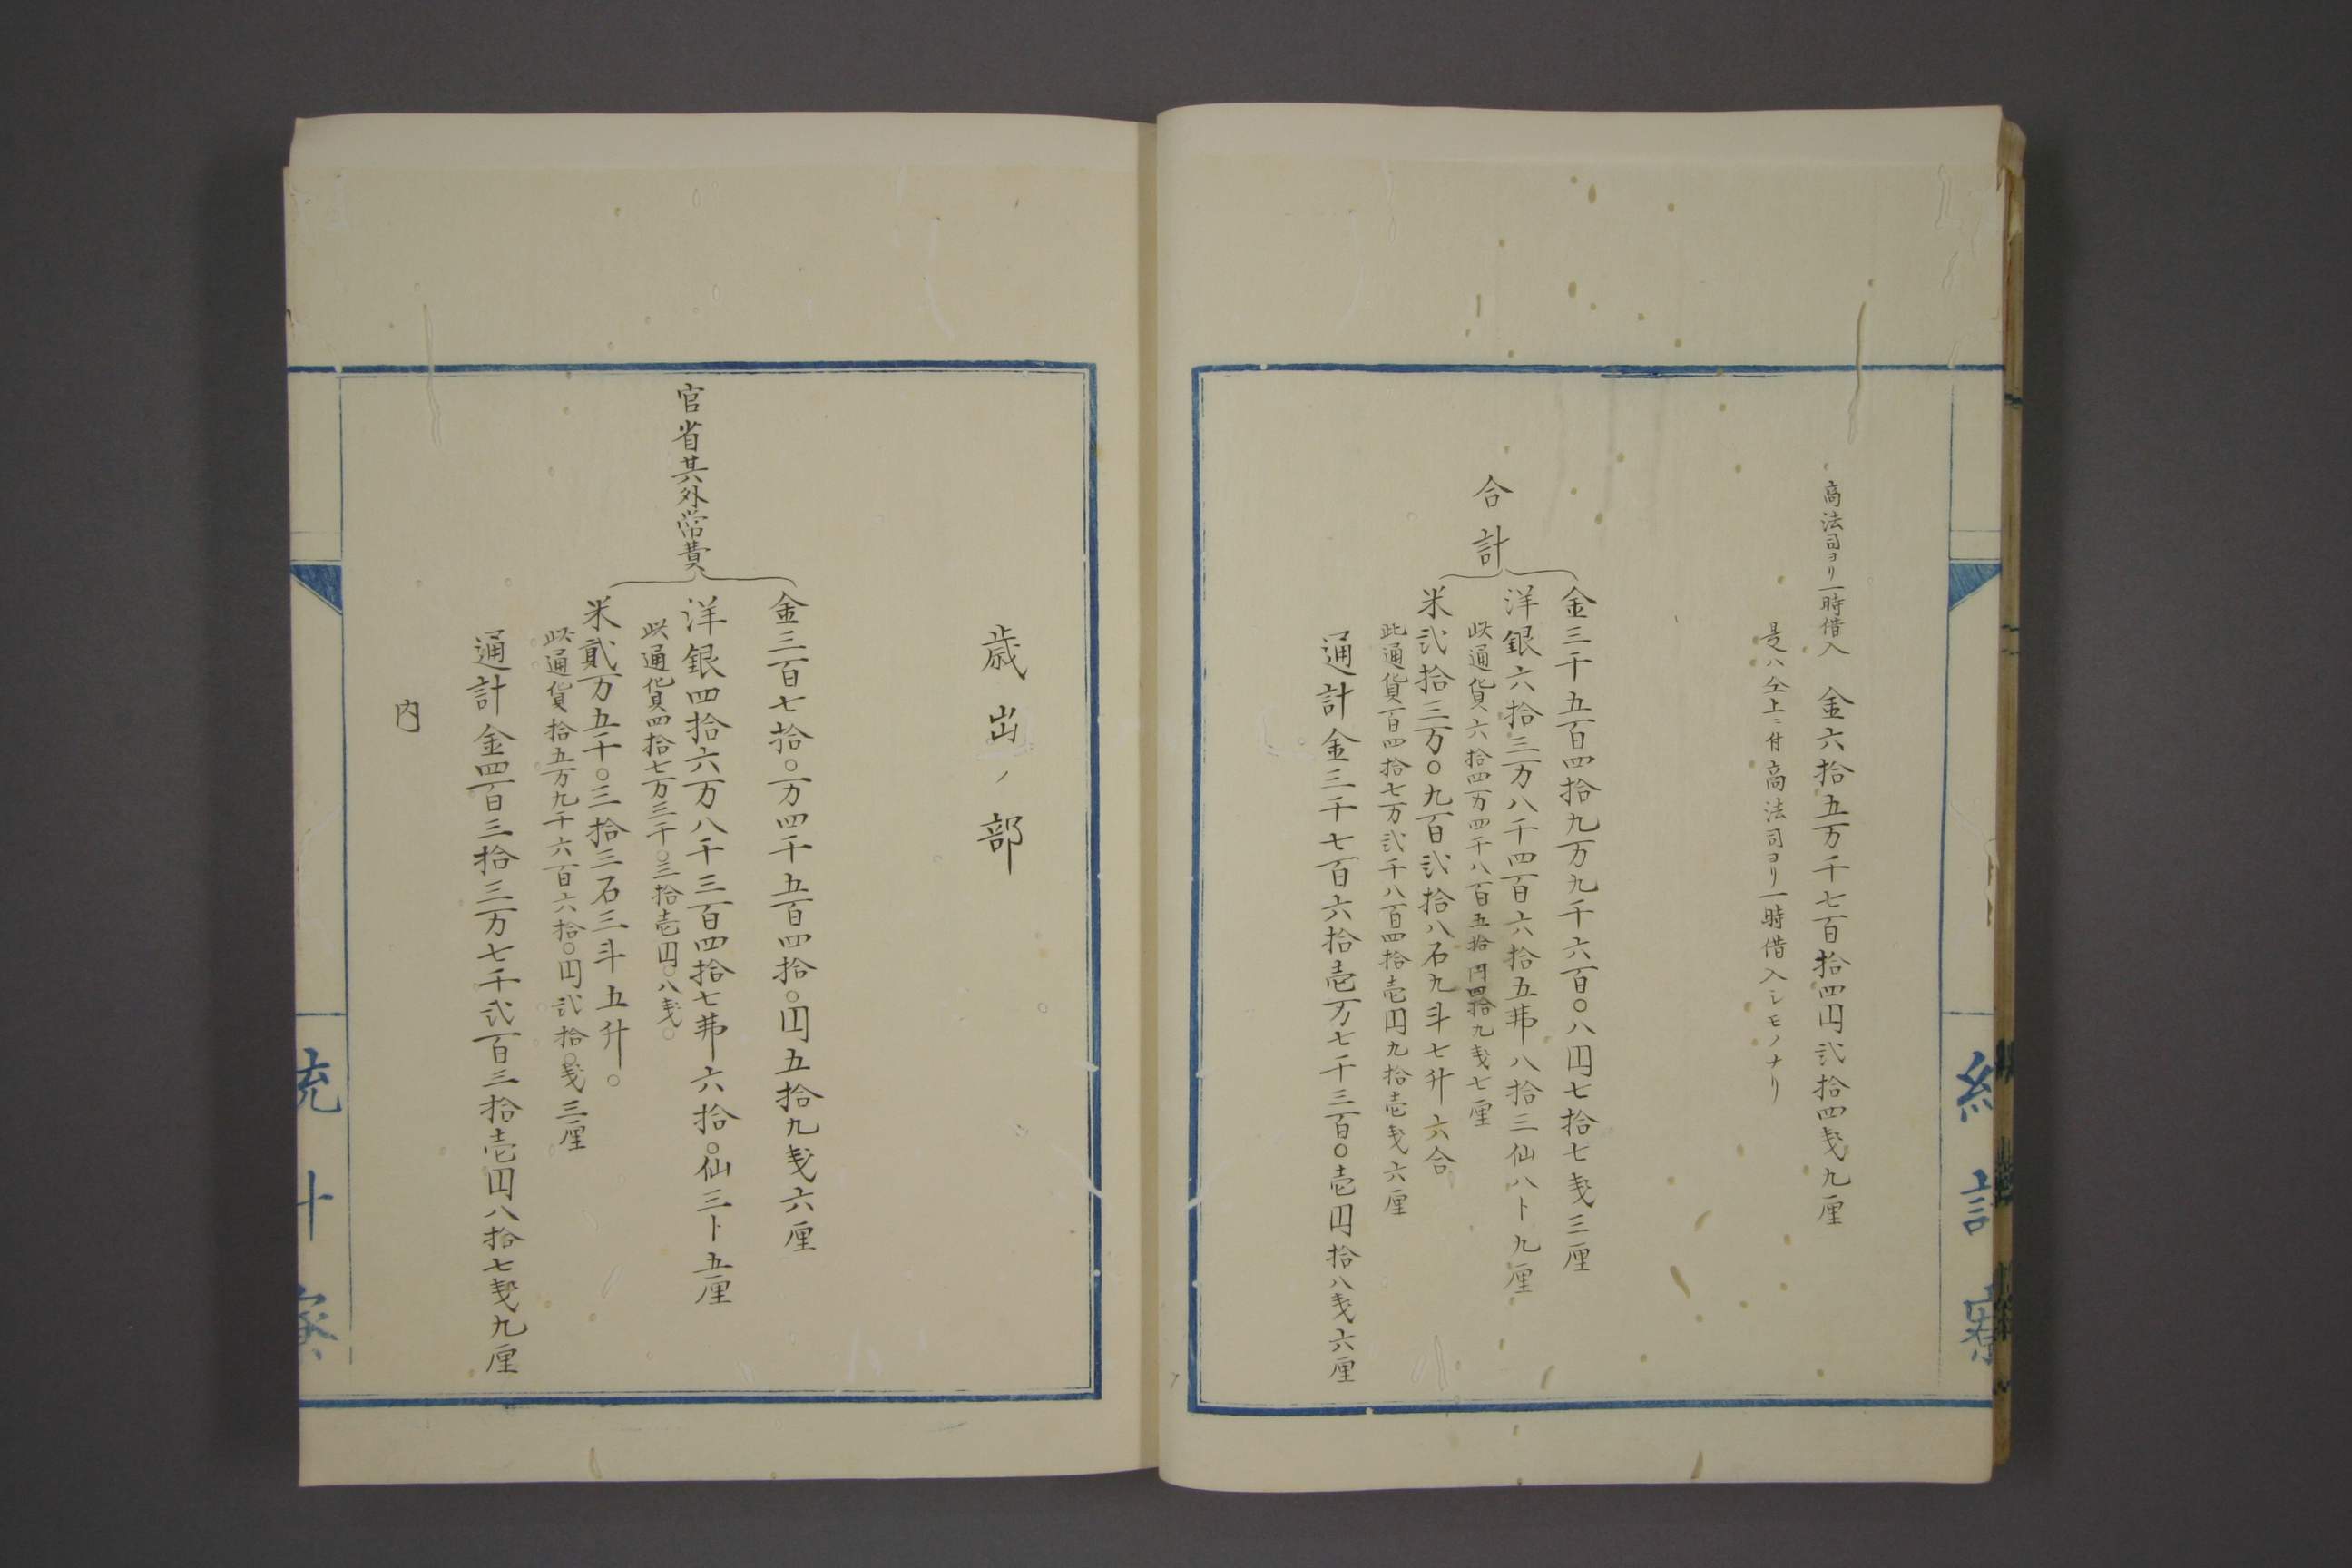 商法司ヨリ一時借入 金六拾五万千七百拾四円弐拾四戔九厘
是ハ仝上ニ付商法司ヨリ一時借入レシモノナリ
合計
金三千五百四拾九万九千六百〇八円七拾七戔三厘
洋銀六拾三万八千四百六拾五弗八拾三仙八卜九厘
此通貨六拾四万四千八百五拾円四拾九戔七厘
米弐拾三万〇九百弐拾八石九斗七升六合
此通貨百四拾七万弐千八百四拾壱円九拾壱戔六厘
通計金三千七百六拾壱万七千三百〇壱円拾八戔六厘
統計寮
歳出ノ部
官省其外常費
金三百七拾〇万四千五百四拾〇円五拾九戔六厘
洋銀四拾六万八千三百四拾七弗六拾〇仙三卜五厘
此通貨四拾七万三千〇三拾壱円〇八戔〇
米貳万五千〇三拾三石三斗五升〇
此通貨拾五万九千六百六拾〇円弐拾〇戔三厘
通計金四百三拾三万七千弐百三拾壱円八拾七戔九厘
内
統計寮